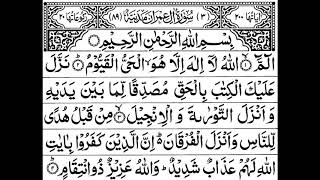 اٰيَاتُهَا ٢٠٠ (٣) سُوْرَةُ اٰلِ عِمْرٰنَ مَدَنِيَّةٌ (٨٩) رُكُوْعَاتُهَا ٢٠
بِسْمِ اللّٰهِ الرَّحْمٰنِ الرَّحِيْمِ
الٓمّٓ ۝١ اللّٰهُ لَاۤ اِلٰهَ اِلَّا هُوَ ۙ الْحَيُّ الْقَيُّوْمُ ۝٢ نَزَّلَ
عَلَيْكَ الْكِتٰبَ بِالْحَقِّ مُصَدِّقًا لِّمَا بَيْنَ يَدَيْهِ
وَاَنْزَلَ التَّوْرٰىةَ وَالْاِنْجِيْلَ ۝٣ مِنْ قَبْلُ هُدًى
لِّلنَّاسِ وَاَنْزَلَ الْفُرْقَانَ ؕ اِنَّ الَّذِيْنَ كَفَرُوْا بِاٰيٰتِ
اللّٰهِ لَهُمْ عَذَابٌ شَدِيْدٌ ؕ وَاللّٰهُ عَزِيْزٌ ذُو انْتِقَامٍ ۝٤